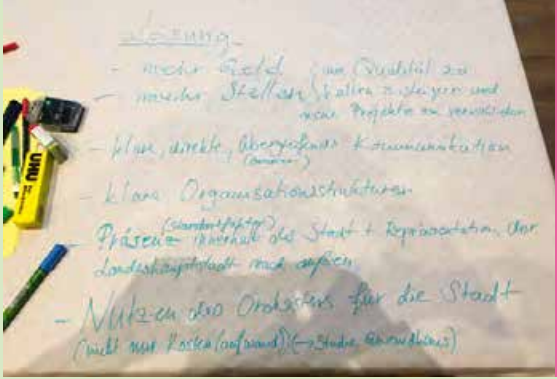 Lösung
- mehr Geld , um Qualität zu
- mehr Stellen halten zu steigern und
mehr Projekte zu
- klare, direkte, Kommunikation
- klare Organisationsstrukturen
(Standortfaktor)
- Präsenz innerhalb der Stadt + Repräsentation der
Landeshauptstadt nach außen
- Nutzen des Orchesters für die Stadt
(nicht nur Kosten (aufwand)) (→ Studie
UHU